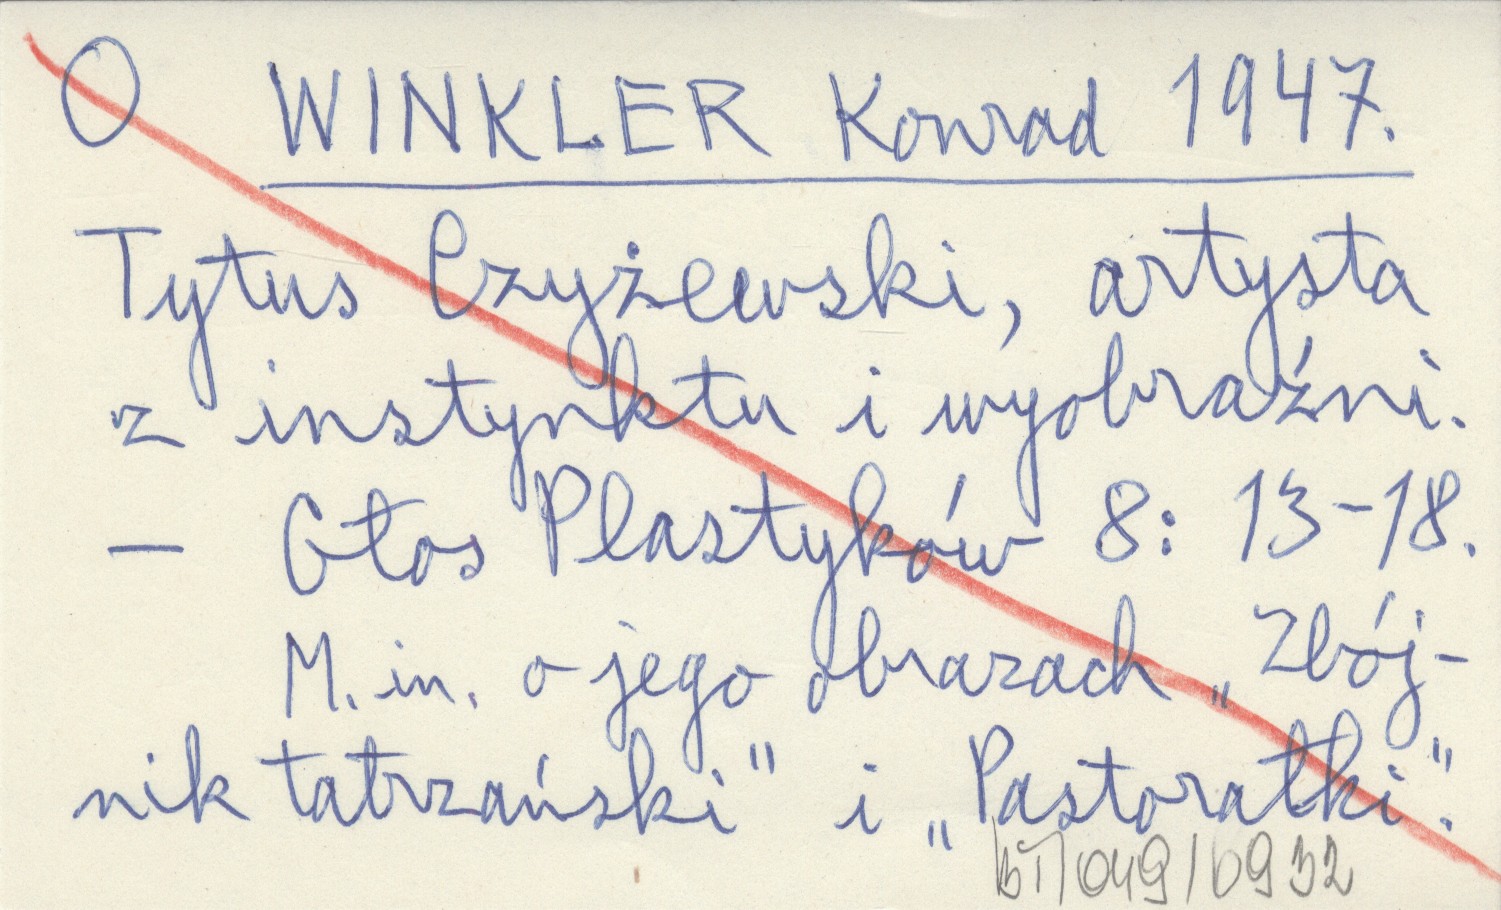 O WINKLER Konrad 1947.
Tytus Czyżewski, artysta
z instynktu i wyobraźni.
— Głos Plastyków 8: 13-18.
M. in. o jego obrazach „Zbój-
nik tatrzański" i „Pastorałki".
BT/049/0932